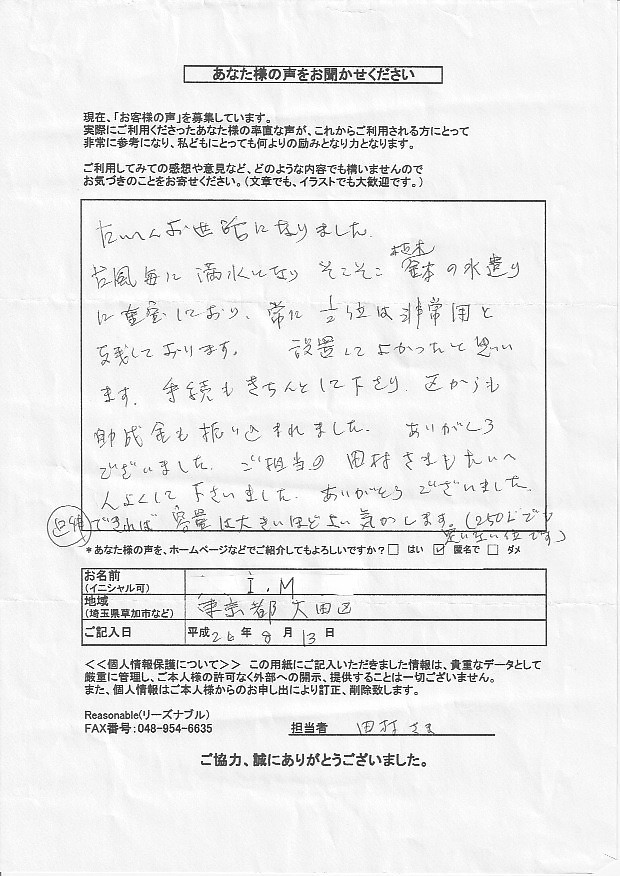 あなた様の声をお聞かせください
現在、「お客様の声」を募集しています。
実際にご利用くださったあなた様の率直な声が、これからご利用される方にとって
非常に参考になり、私どもにとっても何よりの励みとなり力となります。
ご利用してみての感想や意見など、どのような内容でも構いませんので
お気づきのことをお寄せください。(文章でも、イラストでも大歓迎です。)
たいへんお世話になりました。
植木
台風毎に満水となり そこそこ の水遣り
に重宝しており、常に1/2位は非常用と
残しております。 設置してよかったと思い
ます。手続もきちんとして下さり、区からも
助成金も振り込まれました。ありがとう
ございました。ご担当の田村さまもたいへ
んよくして下さいました。ありがとうございました。
できれば容量は大きいほどよい気がします。(250Lでも
足りない位です)
*あなた様の声を、ホームページなどでご紹介してもよろしいですか?□ はい ☑ 匿名で □ ダメ
お名前
(イニシャル可) I.M
地域
(埼玉県草加市など) 東京都大田区
ご記入日 平成26年8月13日
<<個人情報保護について>> この用紙にご記入いただきました情報は、貴重なデータとして
厳重に管理し、ご本人様の許可なく外部への開示、提供することは一切ございません。
また、個人情報はご本人様からのお申し出により訂正、削除致します。
Reasonable(リーズナブル)
FAX番号:048-954-6635 担当者 田村さま
ご協力、誠にありがとうございました。